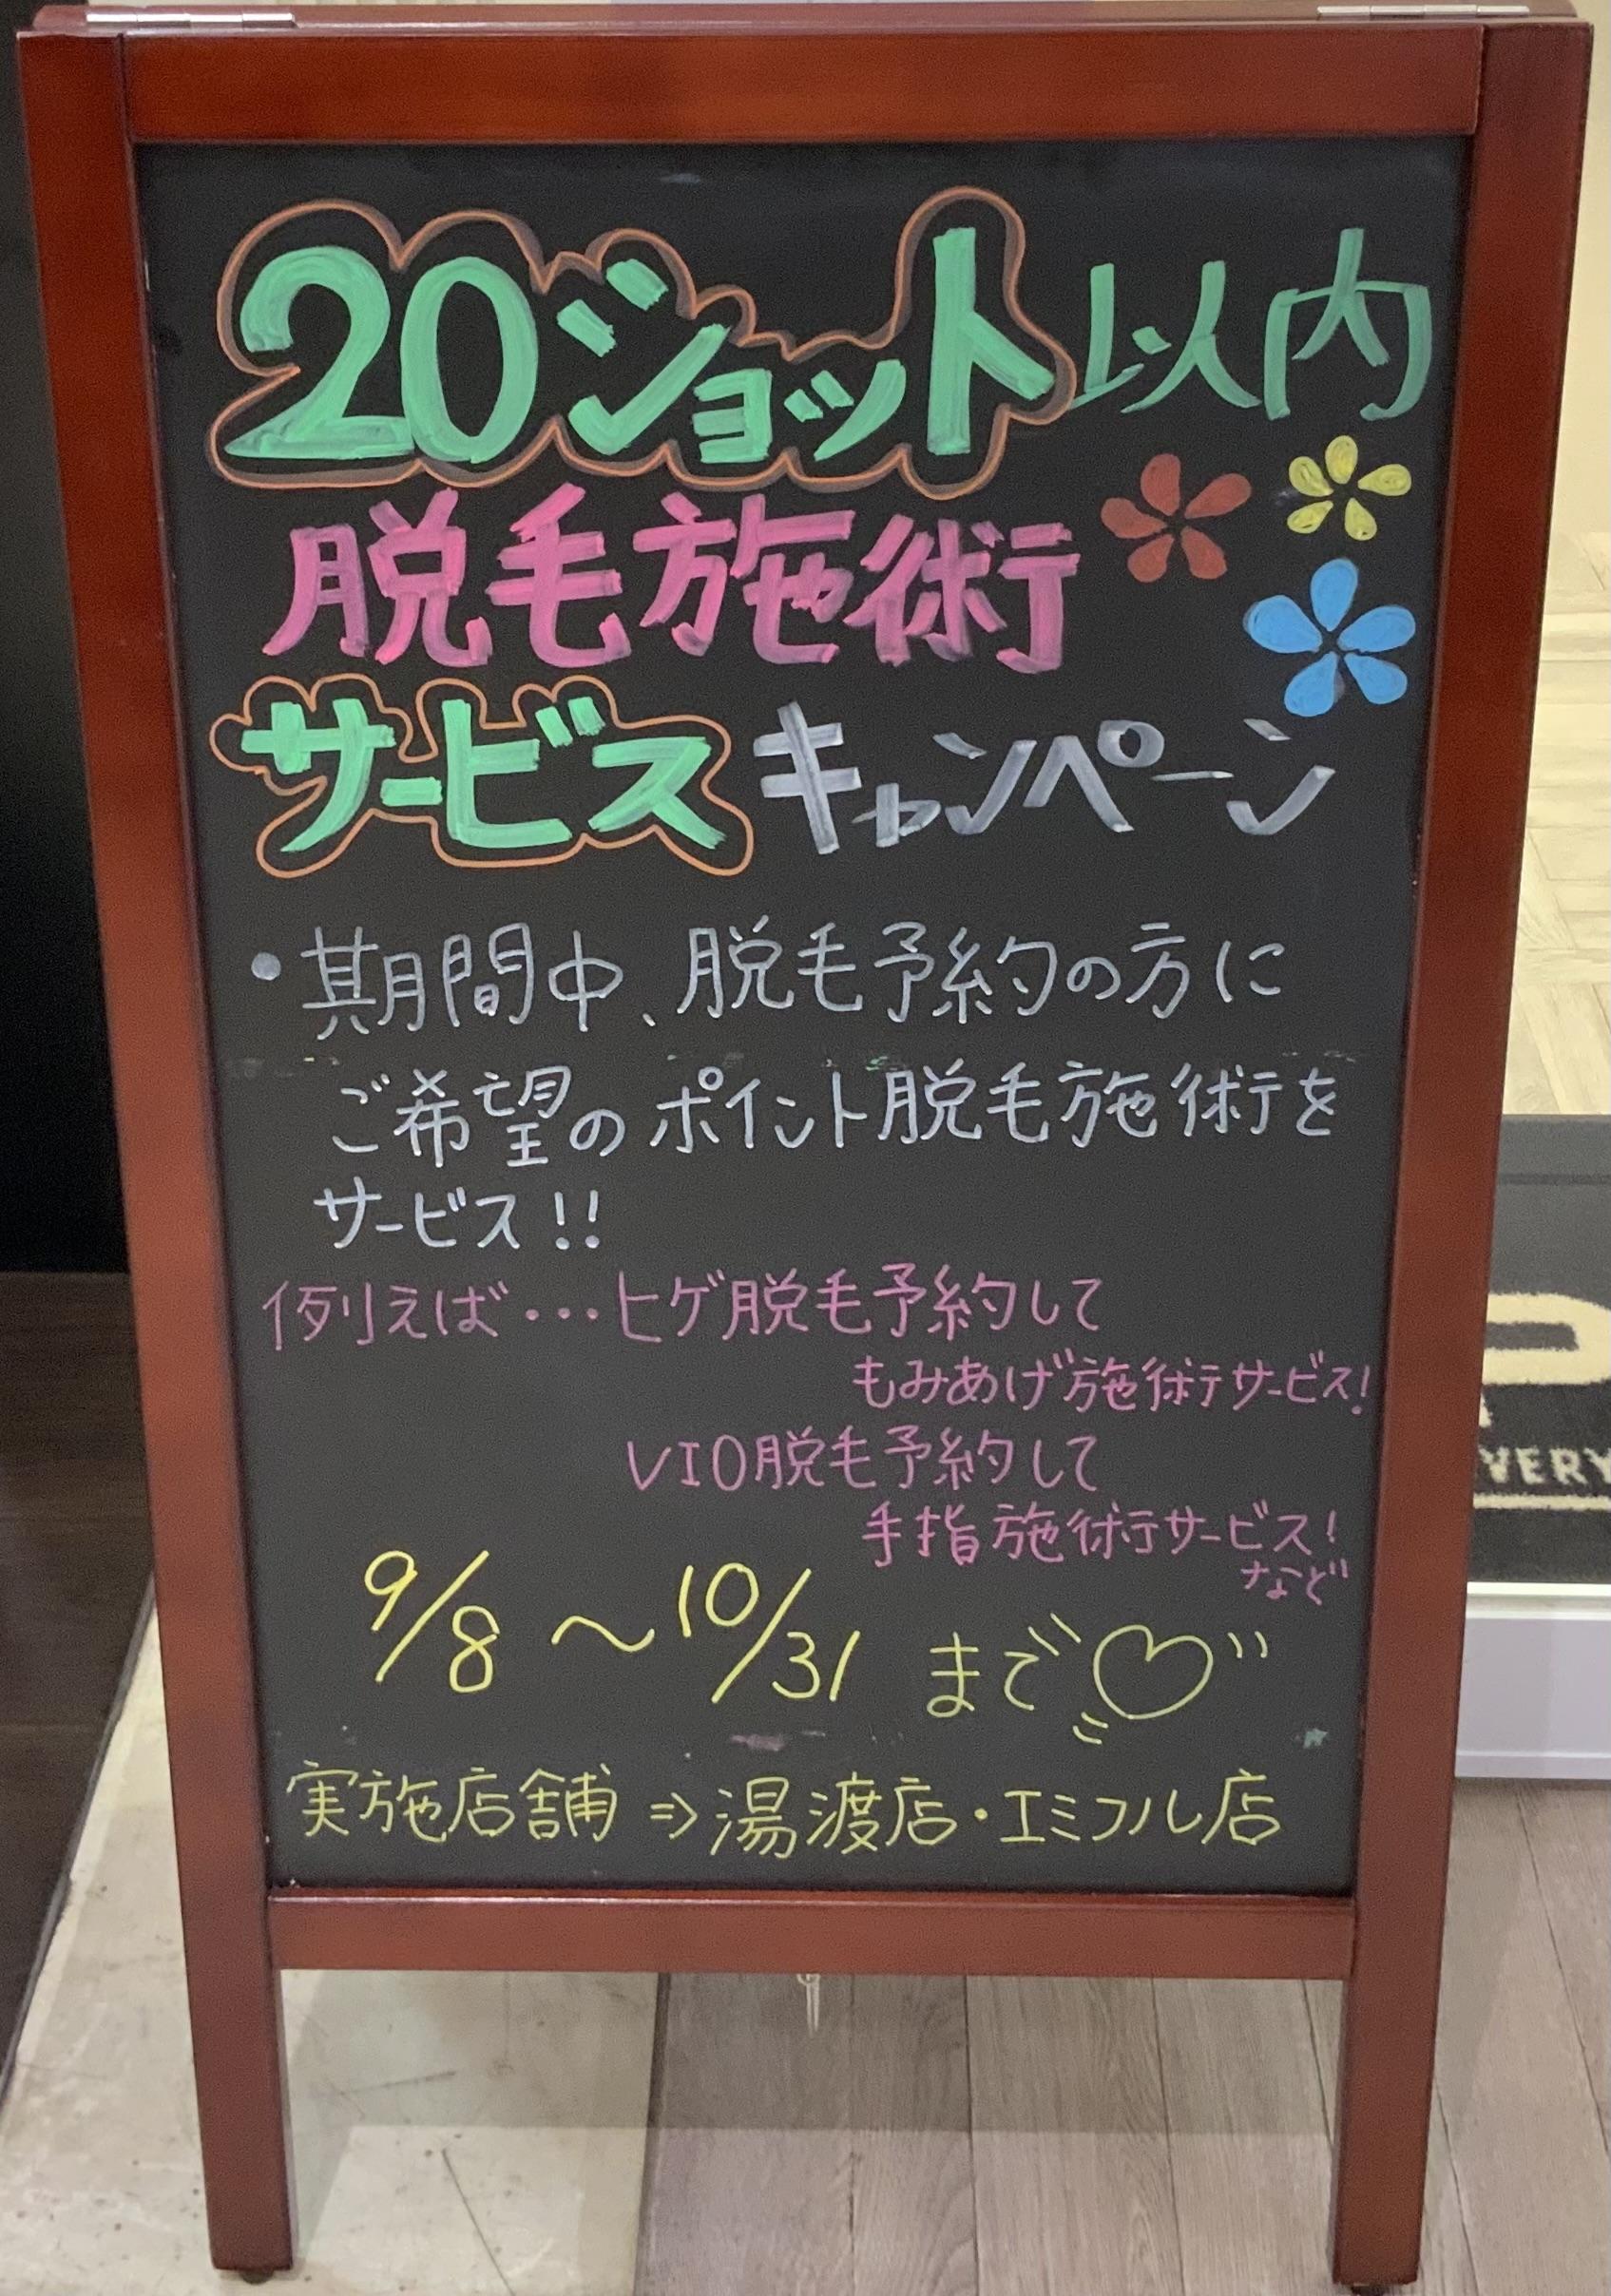 20ショット以内
脱毛施術
サービスキャンペーン
・期間中、脱毛予約の方に
ご希望のポイント脱毛施術を
サービス!!
例えば・・・ヒゲ脱毛予約して
もみあげ施術サービス!
VIO脱毛予約して
手指施術サービス!
など
9/8～10/31まで♡
実施店舗⇒湯渡店・エミフル店
VERY